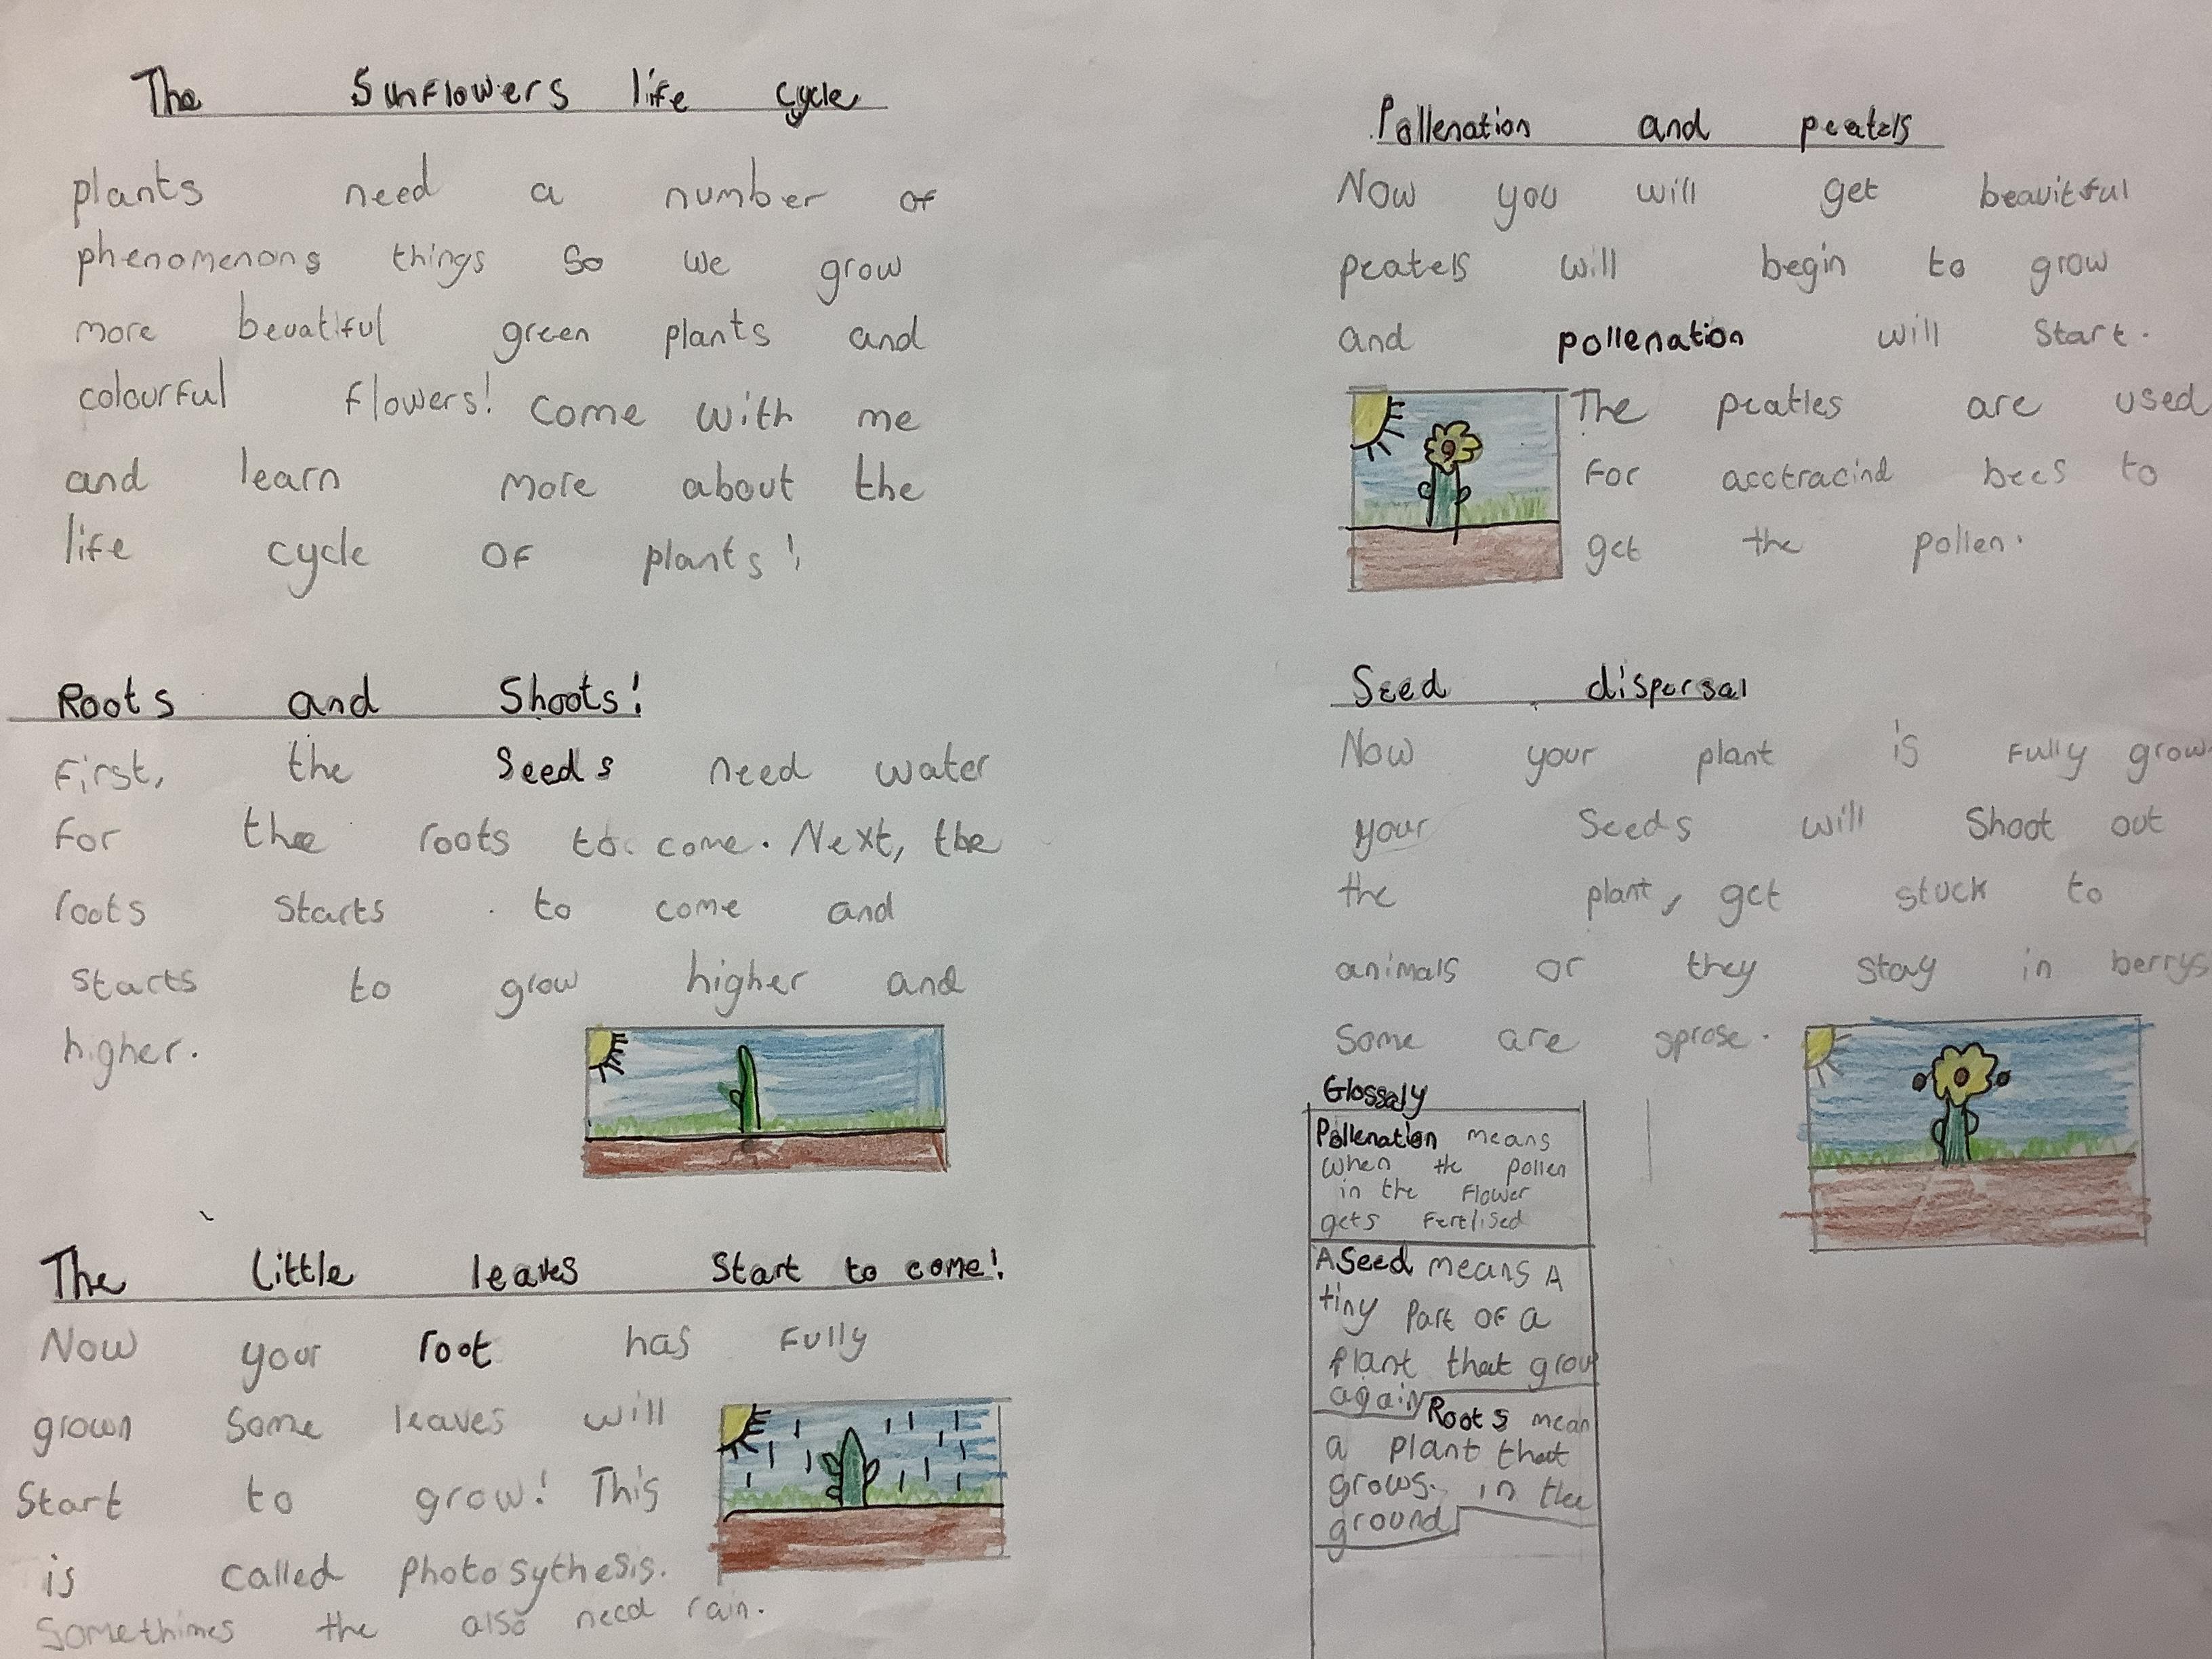 The Sunflowers life cycle
plants need a number of
phenomenons things so we grow
more beuatiful green plants and
colourful flowers! Come with me
and learn more about the
life cycle of plants!
Roots and Shoots!
First, the Seeds need water
for the roots to come. Next, the
roots starts to come and
starts to grow higher and
higher.
The little leaves start to come!
Now your root has fully
grown some leaves will
Start to grow! This
is called photosythesis.
Somethimes the also need rain.
Pollenation and peatels
Now you will get beauitful
peatels will begin to grow
and pollenation will start.
The peatles are used
for acctracind bees to
get the pollen.
Seed dispersal
Now your plant is fully grow
your Seeds will Shoot out
the plant, get stuck to
animals or they stay in berrys
Some are sprose.
Glossaly
Pollenation means
when the pollen
in the flower
gets fertlised
A Seed means A
tiny part of a
plant that grow
again
Roots mean
a plant that
grows. in the
ground